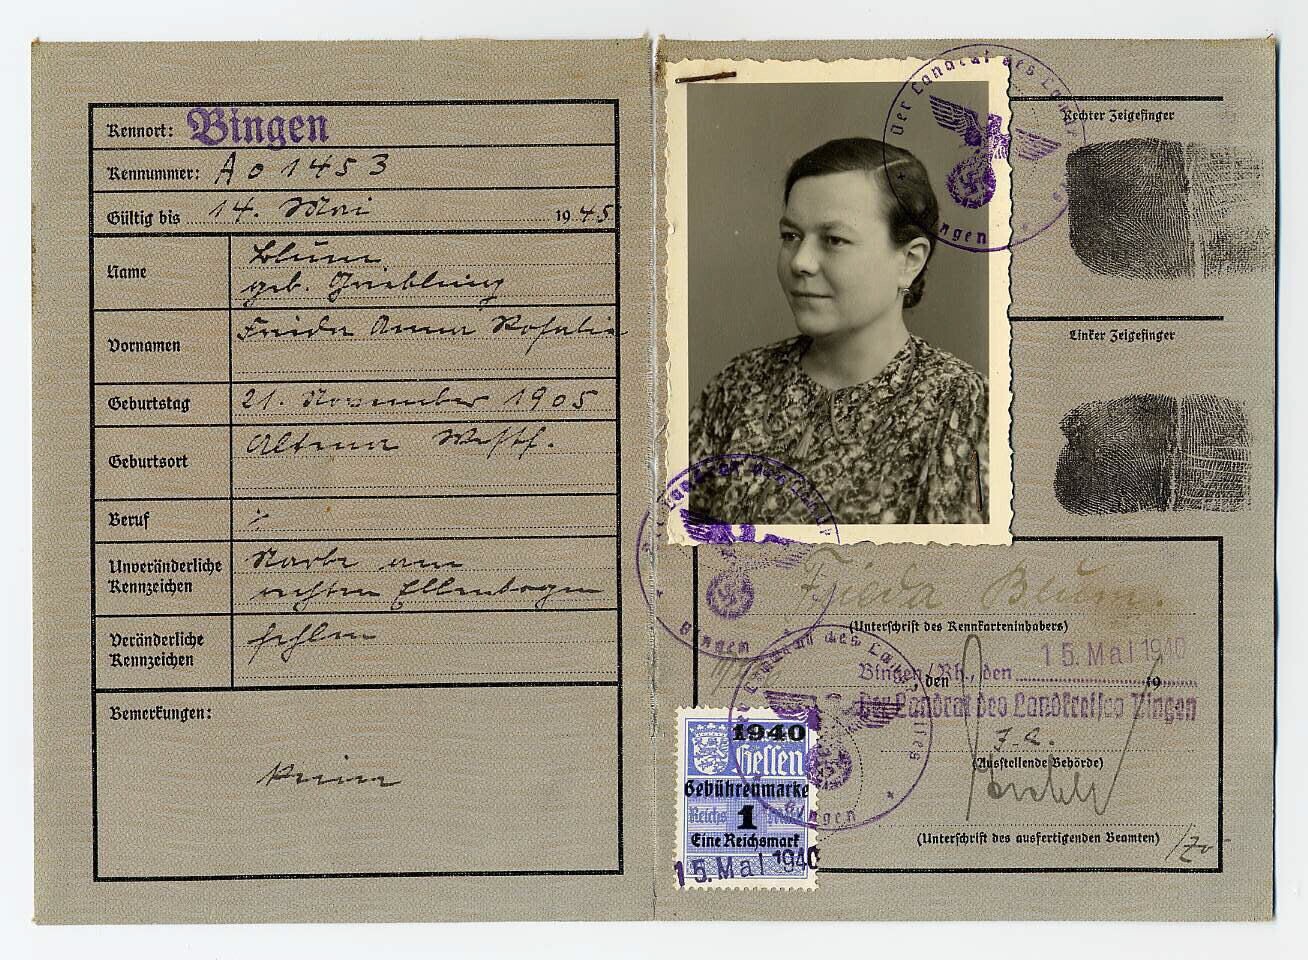 Kennort: Bingen
Kennummer: A 01453
Gültig bis 14. Mai 1945
Name Blum
geb. Griebling
Vornamen Frieda Anna Rosalie
Geburtstag 21. November 1905
Geburtsort Altena Westf.
Beruf ⁒
Unveränderliche Kennzeichen Narbe am
rechten Ellenbogen
Veränderliche Kennzeichen fehlen
Bemerkungen:
Keine
Der Landrat des Landkreises
Bingen
Rechter Zeigefinger
Linker Zeigefinger
Der Landrat des Landkreises
Bingen
Frieda Blum.
(Unterschrift des Kennkarteninhabers)
Bingen/Rh., den 15. Mai 1940
den 19
Der Landrat des Landkreises Bingen
J. A.
(Ausstellende Behörde)
(Unterschrift des ausfertigenden Beamten)
Der Landrat des Landkreises
Bingen
1940
Hessen
Gebührenmarke
Reichs 1 Mark
Eine Reichsmark
15. Mai 1940